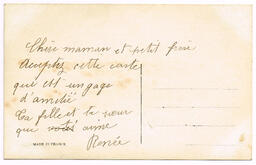 Chère maman et petit frère
Acceptez cette carte
qui est un gage
d'amitié
La fille et ta sœur
qui votre aime
Renée
MADE IN FRANCE